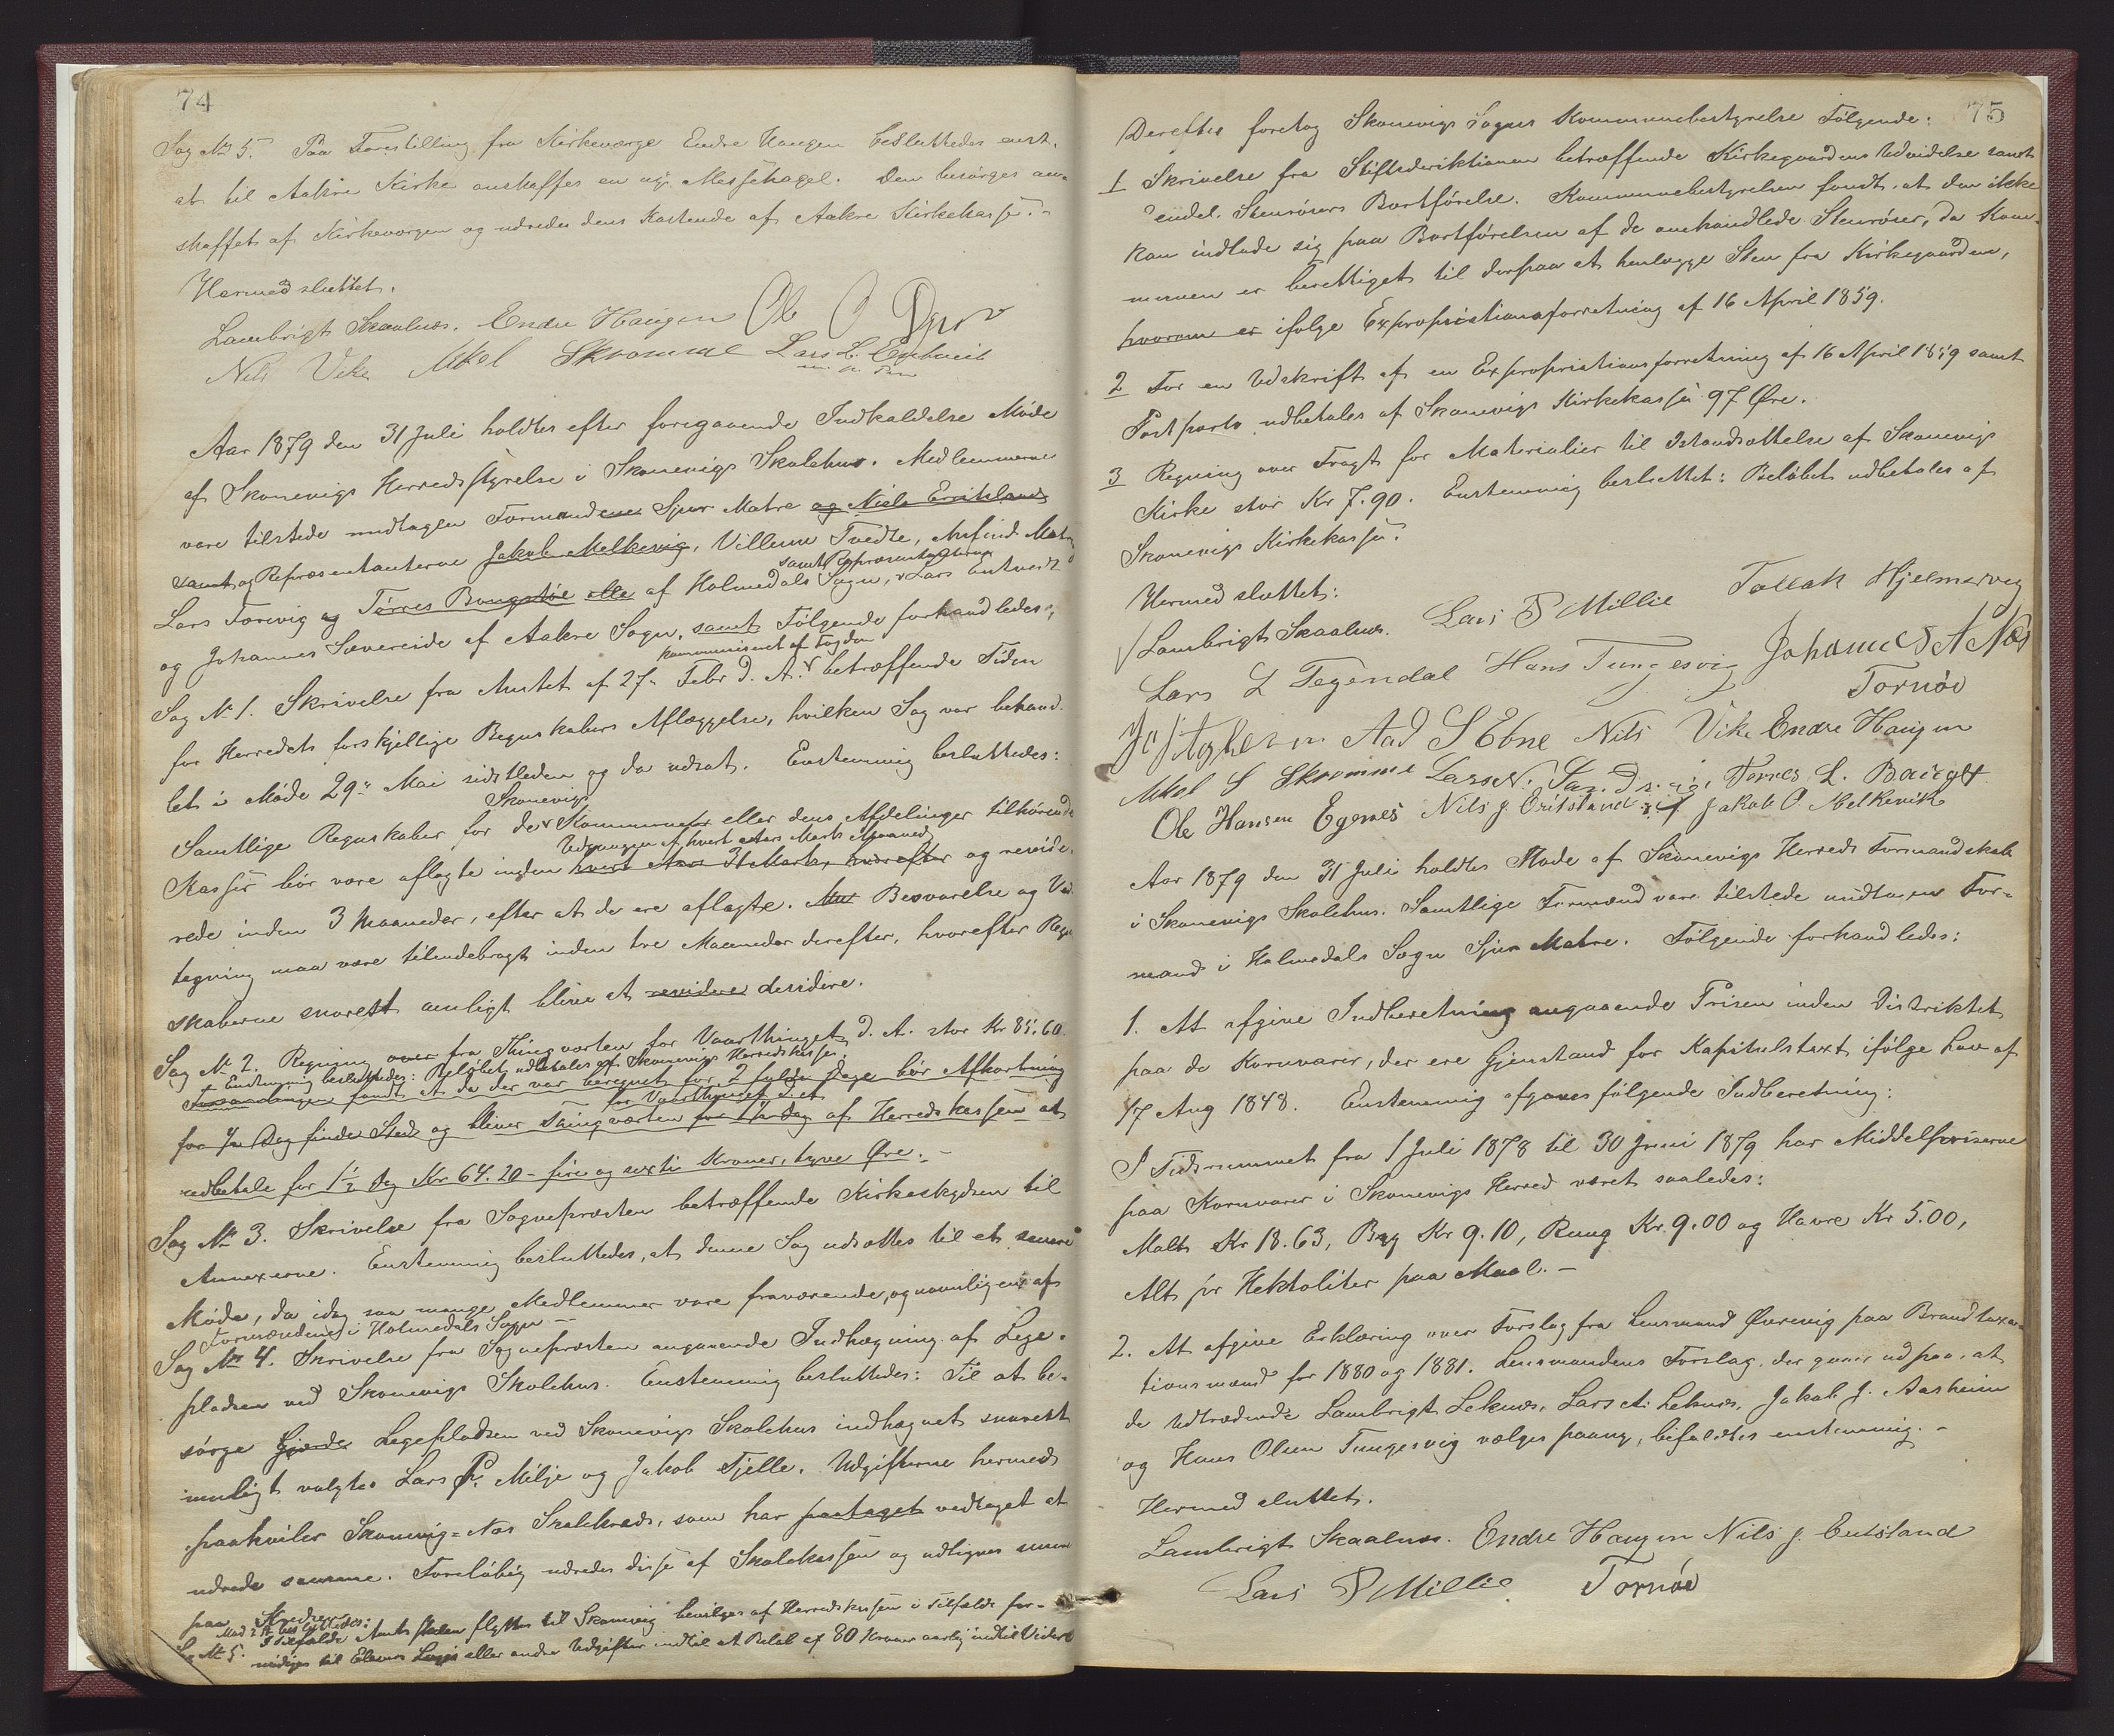 74
Sag No 5. Paa Forestilling fra Kirkeværge Endre Haugen besluttedes enst.
at til Aakre Kirke anskaffes en ny Messehagel. Den besørges an-
skaffet af Kirkeværgen og udredes dens Kostende af Aakre Kirkekasse.-
Hermed sluttet.
Lambrigt Skaalnes. Endre Haugen Ole O
Nils Vike Mkel Skromme Lars L.
Aar 1879 den 31 Juli holdtes efter foregaaende Indkaldelse Møde
af Skonevigs Herredsstyrelse i Skonevigs Skolehus. Medlemmerne
vare tilstede undtagen Formændene Sjur Matre og Niels Eritsland
samt og Repræsentanterne Jakob Melkevig, Villum Tvedte, Anfind Matre
samt Repræsentanterne
Lars Torevig og Tørres Baugstøe alle af Holmedals Sogn, Lars Entveit
og Johannes Sævereide af Aakre Sogn, samt Følgende forhandledes:
kommuniseret af Fogden
Sag No 1. Skrivelse fra Amtet af 27. Febr d. A. betræffende Tiden
for Herredets forskjellige Regnskabers Aflæggelse, hvilken Sag var behand-
let i Møde 29de Mai sidstleden og da udsat. Enstemmig besluttedes:
Skonevigs
Samtlige Regnskaber for de Kommuner eller dens Afdelinger tilhørende
Udgangen af hvert Aars Marts Maaned
Kasser bør være aflagte inden hvert Aars 31 Marts, hvorefter og revide-
rede inden 3 Maaneder, efter at de ere aflagte. Besvarelse og Ved-
tegning maa være tilendebragt inden tre Maaneder derefter, hvorefter Regn-
skaberne snarest muligt blive at revidere desidere.
Sag No 2. Regning over fra Thingverten for Vaarthinget d. A. stor Kr 85.60.
Enstemmig besluttedes: Beløbet udbetales af Skonevigs Herredskasse.
Forsamlingen fandt, at da der var beregnet for 2 fulde Dage bør Afkortning
for Vaarthinget d. A.
for ½ Dag finde Sted og bliver Tingverten for 1½ Dag af Herredskassen at
udbetale for 1½ Dag Kr. 64.20 - fire og sexti Kroner, tyve Øre.-
Sag No 3. Skrivelse fra Sognepræsten betræffende Kirkeskydsen til
Annexerne. Enstemmig besluttedes, at denne Sag udsættes til et senere
Møde, da idag saa mange Medlemmer vare fraværende, og navnligen af
Formændene i Holmedals Sogn -
Sag No 4. Skrivelse fra Sognepræsten angaaende Indhegning af Lege-
pladsen ved Skonevigs Skolehus. Enstemmig besluttedes: Til at be-
sørge Gjærde Legepladsen ved Skonevigs Skolehus indhegnet snarest
muligt valgtes Lars P. Milje og Jakob Tjelle. Udgifterne hermed
paahviler Skonevig-Nes Skolekreds, som har paataget vedtaget at
udrede samme. Foreløbig udredes disse af Skolekassen og udlignes siden
paa Kredsen
Sag No 5. I Tilfælde Amtsskolen flyttes til Skonevig bevilges af Herredskassen i Tilfælde for-
nødiges til Elevers Logi eller andre Udgifter indtil et Beløb af 80 Kroner aarlig indtil Videre
75
Derefter foretog Skonevigs Sogns Kommunebestyrelse Følgende:
1 Skrivelse fra Stiftsdirektionen betræffende Kirkegaardens Udvidelse samt
endel Stenrøsers Bortførelse. Kommunebestyrelsen fandt, at den ikke
kan indlade sig paa Bortførelsen af de omhandlede Stenrøser, da Kom-
munen er berettiget til derpaa at henlægge Sten fra Kirkegaarden,
hvorom er ifølge Expropriationsforretning af 16 April 1859.
2 For en Udskrift af en Expropriationsforretning af 16 April 1859 samt
Postporto udbetales af Skonevigs Kirkekasse 97 Øre.
3 Regning over Fragt for Materialier til Istandsættelse af Skonevigs
Kirke stor Kr 7.90. Enstemmig besluttet: Beløbet udbetales af
Skonevigs Kirkekasse.
Hermed sluttet:
Lambrigt Skaalnes. Lars P Millie Tollak Hjelmerveg
Lars L Tegendal Hans Tungesvig Johannes A Næs
Tornøe
Aad S Ebne Nils Vike Endre Haugen
Mkel S Skromme Lars N. Tørres L. Baugst
Ole Hansen Egenes Nils J. Eritsland Jakob O. Melkevik
Aar 1879 den 31 Juli holdtes Møde af Skonevigs Herreds Formandskab
i Skonevigs Skolehus. Samtlige Formænd vare tilstede undtagen For-
mand i Holmedals Sogn Sjur Matre. Følgende forhandledes:
1. At afgive Indberetning angaaende Prisen inden Distriktet
paa de Kornvarer, der ere Gjenstand for Kapitelstaxt ifølge Lov af
17 Aug 1848. Enstemmig afgaves følgende Indberetning:
I Tidsrummet fra 1 Juli 1878 til 30 Juni 1879 har Middelpriserne
paa Kornvarer i Skonevigs Herred været saaledes:
Malt Kr 18.63, Byg Kr 9.10, Rung Kr. 9.00 og Havre Kr 5.00,
Alt pr Hektoliter paa Maal.-
2. At afgive Erklæring over Forslag fra Lensmand Øvrevig paa Brandtaxa-
tionsmænd for 1880 og 1881. Lensmandens Forslag, der gaaer ud paa, at
de Udtrædende Lambrigt Leknes, Lars A. Leknes, Jakob J. Aarheim
og Hans Olsen Tungesvig vælges paany, bifaldtes enstemmig.-
Hermed sluttet.
Lambrigt Skaalnes. Endre Haugen Nils J. Eritsland
Lars P Millie Tornøe